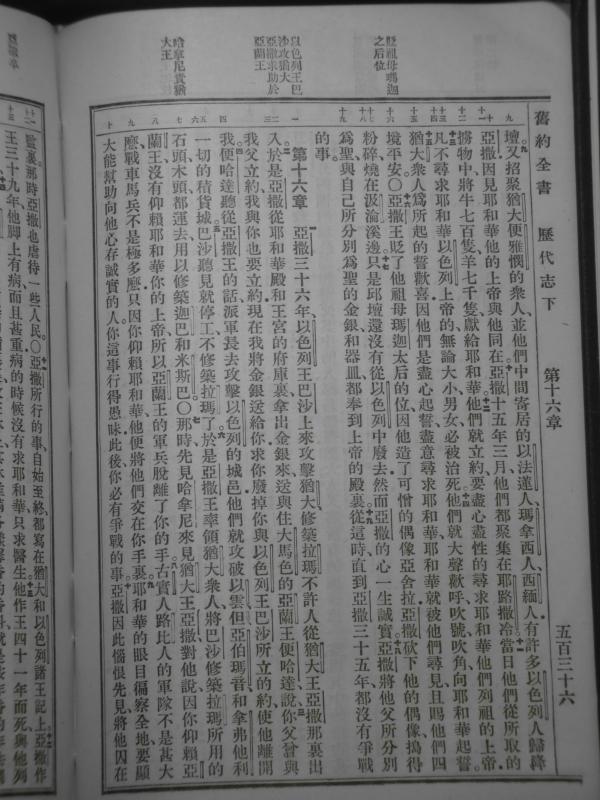 舊約全書 歷代志下 第十六章 五百三十六
貶祖母瑪迦
之后位
以色列王巴
沙攻猶大
亞撒求助於
亞蘭王
哈拿尼責猶
大王
壇、又招聚猶大便雅憫的衆人、並他們中間寄居的以法蓮人、瑪拿西人、西緬人、有許多以色列人歸降
亞撒、因見耶和華他的上帝與他同在。亞撒十五年三月、他們都聚集在耶路撒冷。當日他們從所取的
擄物中、將牛七百隻、羊七千隻、獻給耶和華。他們就立約、要盡心盡性的尋求耶和華他們列祖的上帝。
凡不尋求耶和華以色列上帝的、無論大小男女、必被治死。他們就大聲歡呼、吹號吹角、向耶和華起誓。
猶大衆人爲所起的誓歡喜、因他們是盡心起誓、盡意尋求耶和華、耶和華就被他們尋見、且賜他們四
境平安。〇亞撒王貶了他祖母瑪迦太后的位、因他造了可憎的偶像亞舍拉、亞撒砍下他的偶像、搗得
粉碎、燒在汲淪溪邊。只是邱壇還沒有從以色列中廢去、然而亞撒的心一生誠實。亞撒將他父所分別
爲聖、與自己所分別爲聖的金銀和器皿、都奉到上帝的殿裏。從這時直到亞撒三十五年、都沒有爭戰
的事。
第十六章 亞撒三十六年、以色列王巴沙上來攻擊猶大、修築拉瑪、不許人從猶大王亞撒那裏出
入。於是亞撒從耶和華殿和王宮的府庫裏拿出金銀來、送與住大馬色的亞蘭王便哈達、說、你父曾與
我父立約、我與你也要立約、現在我將金銀送給你、求你廢掉你與以色列王巴沙所立的約、使他離開
我。便哈達聽從亞撒王的話、派軍長去攻擊以色列的城邑、他們就攻破以雲、但、亞伯瑪音、和拿弗他利
一切的積貨城。巴沙聽見就停工、不修築拉瑪了。於是亞撒王率領猶大衆人、將巴沙修築拉瑪所用的
石頭木頭都運去、用以修築迦巴和米斯巴。〇那時先見哈拿尼來見猶大王亞撒、對他說、因你仰賴亞
蘭王、沒有仰賴耶和華你的上帝、所以亞蘭王的軍兵脫離了你的手。古實人、路比人的軍隊不是甚大
麼、戰車馬兵不是極多麼、只因你仰賴耶和華、他便將他們交在你手裏。耶和華的眼目徧察全地、要顯
大能幫助向他心存誠實的人、你這事行得愚昧、此後你必有爭戰的事。亞撒因此惱恨先見、將他囚在
監裏、那時亞撒也虐待一些人民。〇亞撒所行的事、自始至終、都寫在猶大和以色列諸王記上。亞撒作
王三十九年、他脚上有病、而且甚重、病的時候沒有求耶和華、只求醫生。他作王四十一年而死、與他列